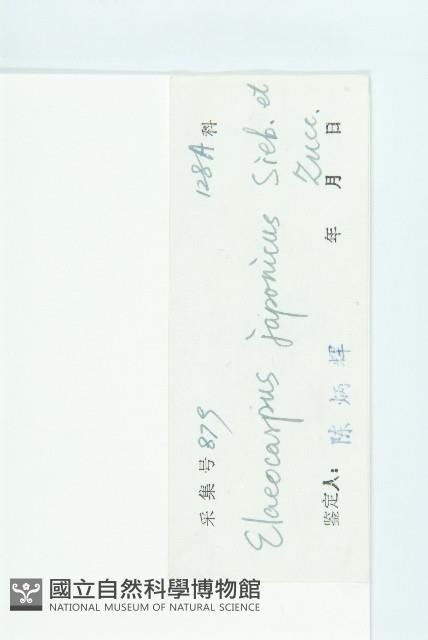 采集号 879 128A 科
Elaeocarpus japonicus Sieb. et
Zucc.
鉴定人: 陈炳辉 年 月 日
國立自然科學博物館
NATIONAL MUSEUM OF NATURAL SCIENCE